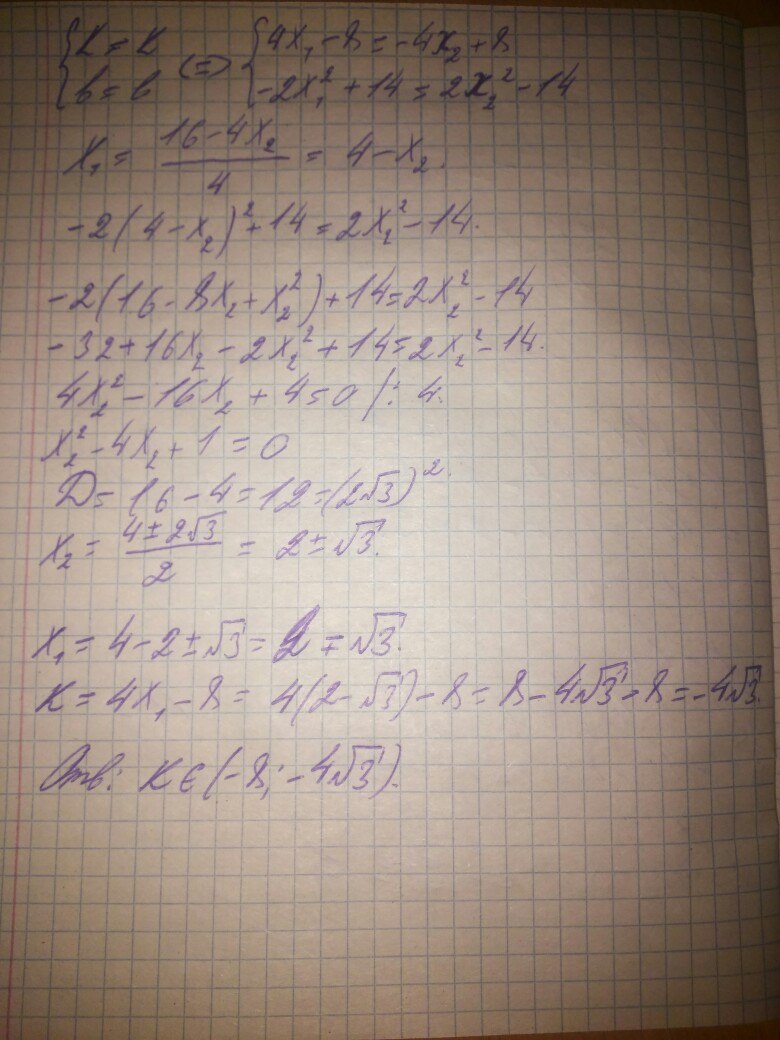 {K = K (=> {4x₁ - 8 = -4x₂ + 8
{b = b {-2x₁² + 14 = 2x₂² - 14
x₁ = (16 - 4x₂)/4 = 4 - x₂.
-2(4 - x₂)² + 14 = 2x₂² - 14.
-2(16 - 8x₂ + x₂²) + 14 = 2x₂² - 14
-32 + 16x₂ - 2x₂² + 14 = 2x₂² - 14.
4x₂² - 16x₂ + 4 = 0 /: 4.
x₂² - 4x₂ + 1 = 0
D = 16 - 4 = 12 = (2√3)².
x₂ = (4 ± 2√3)/2 = 2 ± √3.
x₁ = 4 - 2 ± √3 = 2 ∓ √3.
K = 4x₁ - 8 = 4(2 - √3) - 8 = 8 - 4√3 - 8 = -4√3.
Отв: K ∈ (-8; -4√3).